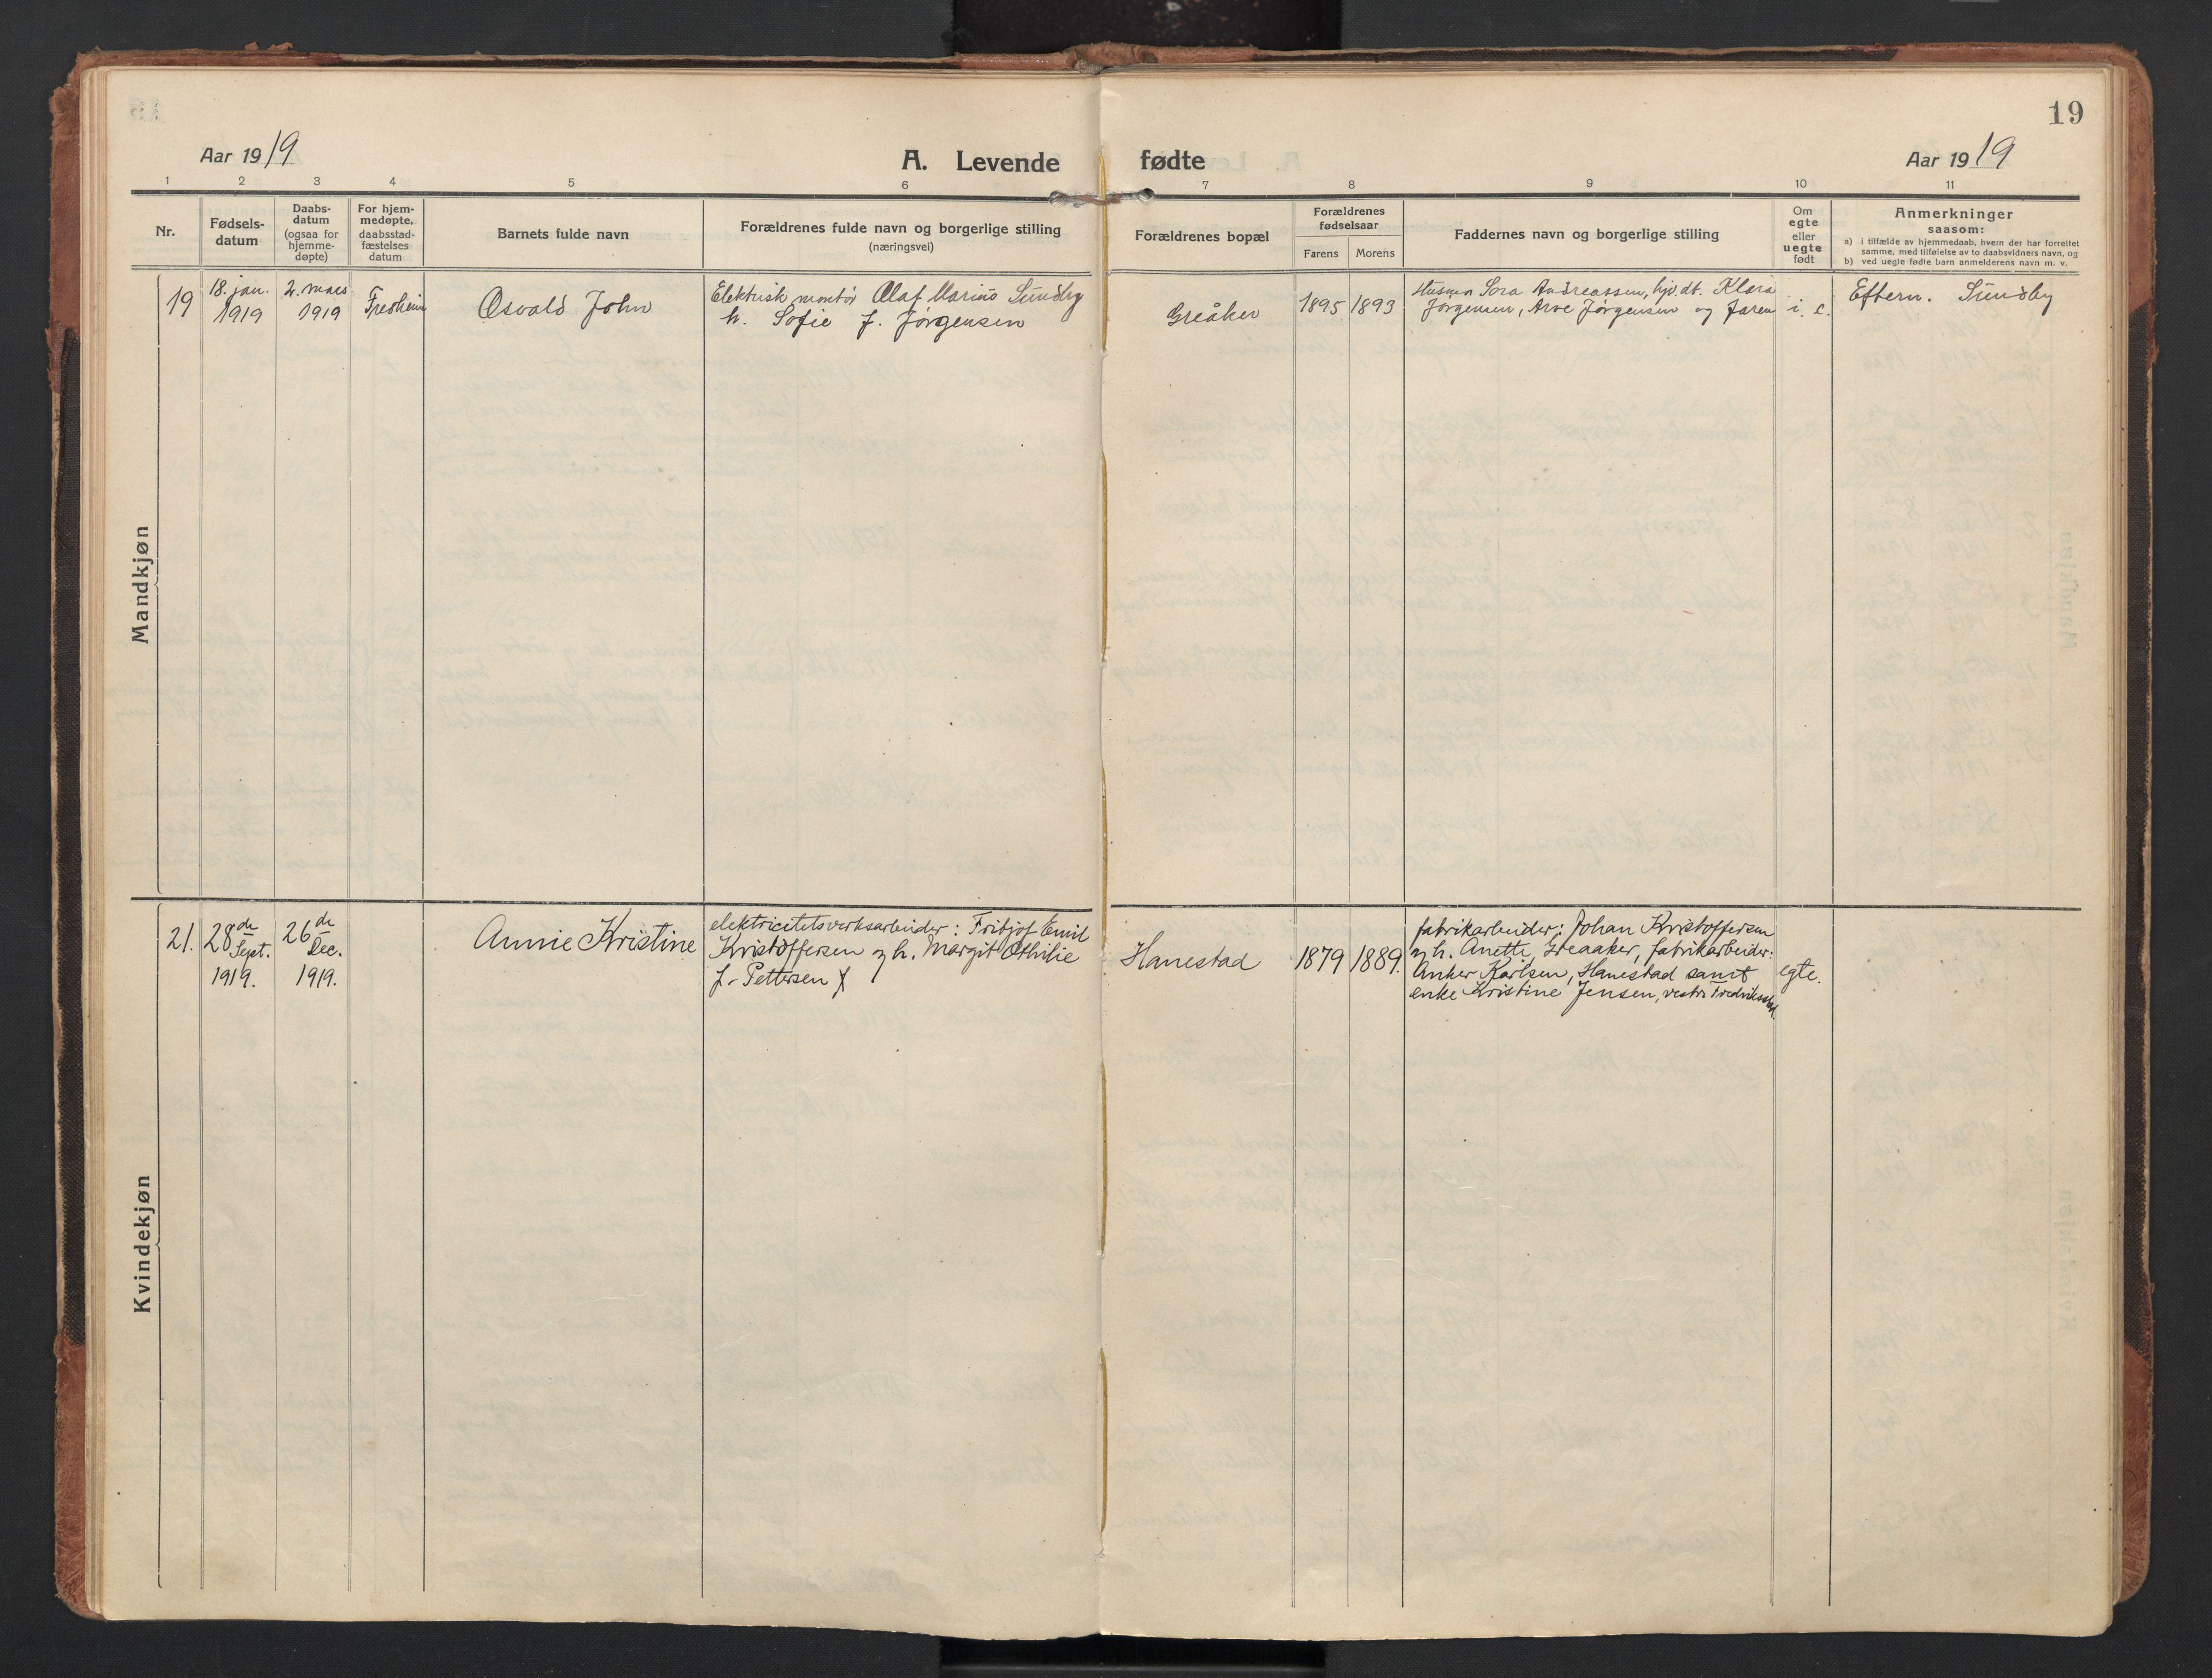 19
Aar 1919
A. Levende fødte
Aar 1919
1 2 3 4 5 6 7 8 9 10 11
Nr.
Fødsels-
datum
Daabs-
datum
(ogsaa for
hjemme-
døpte)
For hjem-
medøpte,
daabsstad-
fæstelses
datum
Barnets fulde navn
Forældrenes fulde navn og borgerlige stilling
(næringsvei)
Forældrenes bopæl
Forældrenes
fødselsaar
Farens Morens
Faddernes navn og borgerlige stilling
Om
egte
eller
uegte
født
Anmerkninger
saasom:
a) i tilfælde av hjemmedaab, hvem der har forrettet
samme, med tilføielse av to daabsvidners navn, og
b) ved uegte fødte barn anmelderens navn m. v.
Mandkjøn
19
18. jan.
1919
2. mars
1919
Fredheim
Osvald John
Elektrisk montør Olaf Marius Sundby
h. Sofie f. Jørgensen
Greåker
1895 1893
Andreassen, hjv. dt. Klara
Jørgensen, Arve Jørgensen og faren
i. e.
Eftern. Sundby
Kvindekjøn
21.
28de
Sept.
1919.
26de
Dec.
1919.
Annie Kristine
elektricitetsverksarbeider: Fritjof Emil
Kristoffersen og h. Margit Othilie
f. Pettersen
Hanestad
1879 1889.
fabrikarbeider: Johan Kristoffersen
og h. Anette, Greaaker, fabrikarbeider:
Anker Karlsen, Hanestad samt
enke Kristine Jensen, vestre Fredrikstad
egte.